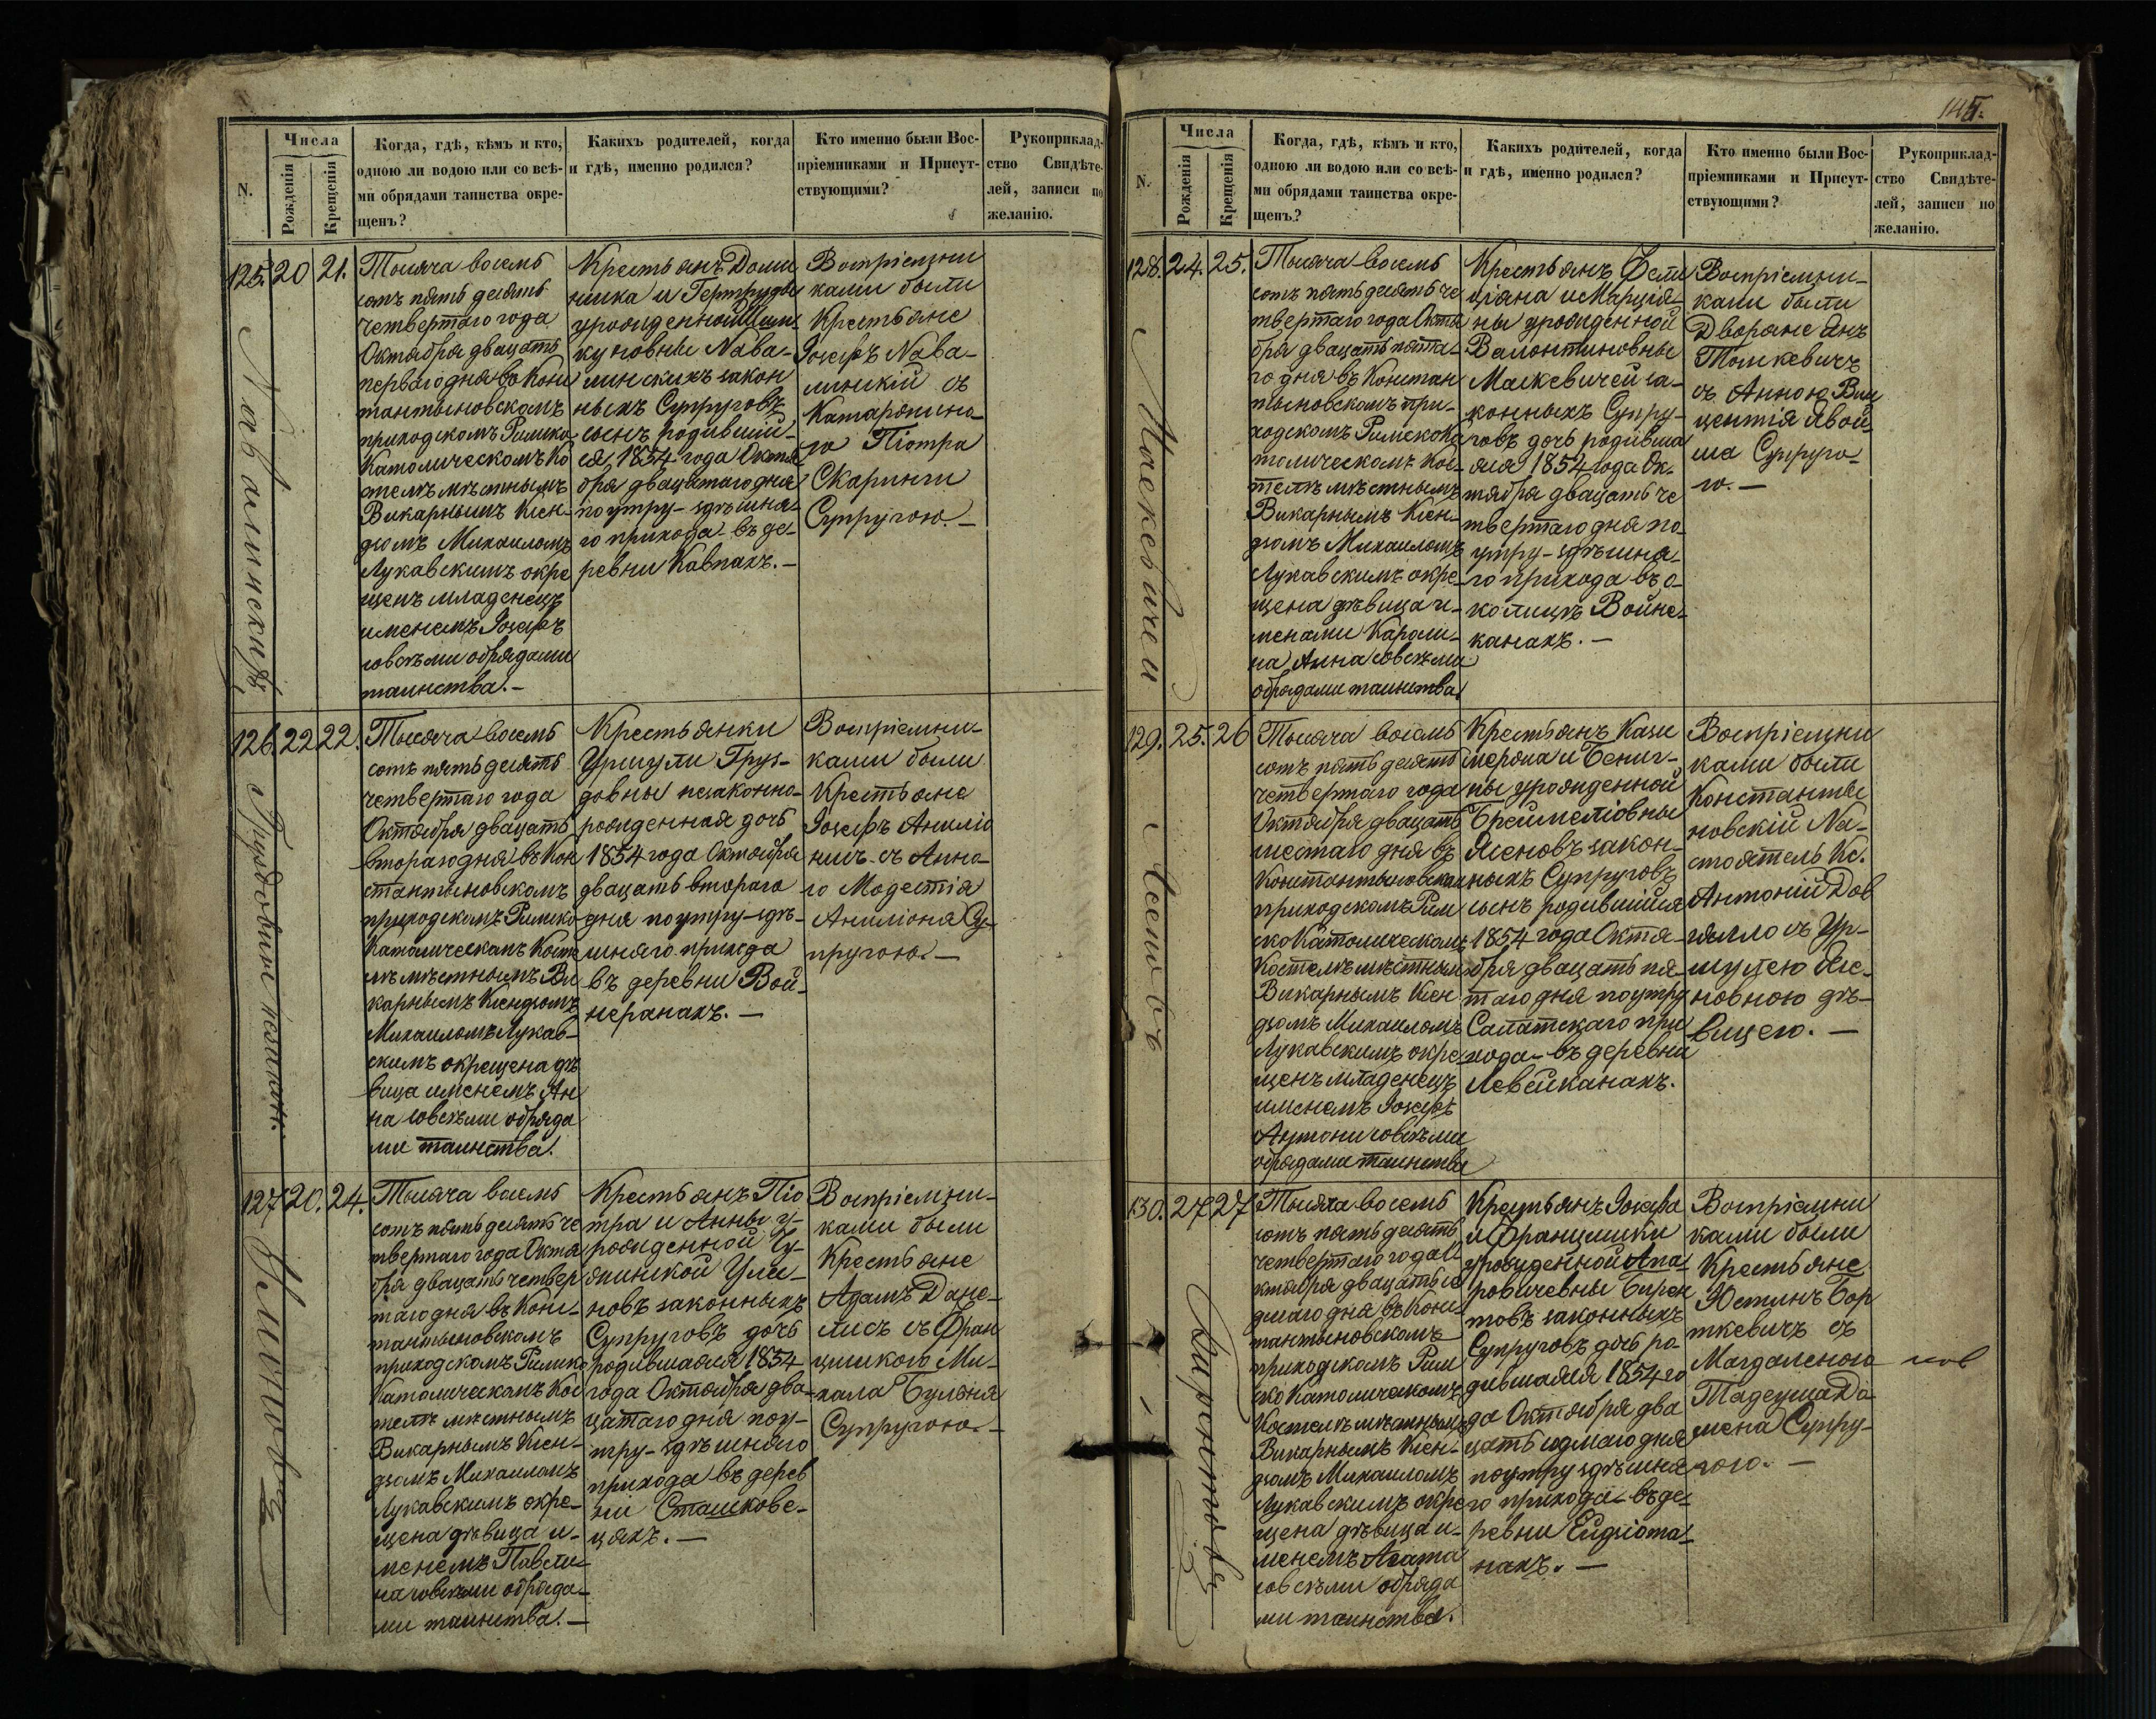 145.
Числа
N.
Рожденія
Крещенія
Когда, гдѣ, кѣмъ и кто,
одною ли водою или со всѣ-
ми обрядами таинства окре-
щенъ?
Каких родителей, когда
и гдѣ, именно родился?
Кто именно были Вос-
пріемниками и Присут-
ствующими?
Рукоприклад-
ство Свидѣте-
лей, записи по
желанію.
125. 20 21.
Тысяча восемь
сотъ пять десять
четвертаго года
Октября двацать
перваго дня во Конс
тантыновскомъ
приходскомъ Римско
Католическомъ Ко
стелѣ мѣстнымъ
Викарнымъ Ксен-
дзомъ Михаиломъ
Лукавскимъ окре
щенъ младенецъ
именемъ Іосифъ
совсѣми обрядами
таинства.-
Крестьянъ Доми
ника и Гертруды
урожденной
куновны Нава-
линскихъ закон
ныхъ Супруговъ
сынъ родившій-
ся, 1854 года Октя
бря двацатаго дня
поутру - здѣшня-
го прихода - въ де-
ревни Кавпахъ.-
Воспріемни
ками были
Крестьяне
Іосифъ Нава-
линскій съ
Катарыпино-
ю Піотра
Скаринги
Супругою.-
Навалинскихъ
126. 22 22.
Тысяча восемь
сотъ пять десять
четвертаго года
Октября двацать
втораго дня въ Кон
стантыновскомъ
приходскомъ Римско
Католическомъ Косте
лѣ мѣстнымъ Ви
карнымъ Ксендзомъ
Михаиломъ Лукав-
скимъ окрещена дѣ
вица именемъ Ан
на совсѣми обряда
ми таинства.
Крестьянки
Уршули Груз-
довны незаконно-
рожденная дочь
1854 года Октября
двацать втораго
дня поутру - здѣ-
шняго прихода
въ деревни Вой-
неранахъ.-
Воспріемни-
ками были
Крестьяне
Іосифъ Анилío
нисъ съ Анно-
ю Модестія
Аниліоня Су-
пругою.-
127 20. 24.
Тысяча восемь
сотъ пять десять че
твертаго года Октя
бря двацать четвер
таго дня въ Конс-
тантыновскомъ
приходскомъ Римско
Католическомъ Кос
телѣ мѣстнымъ
Викарнымъ Ксен-
дзомъ Михаиломъ
Лукавскимъ окре-
щена дѣвица и-
менемъ Павели-
на совсѣми обряда-
ми таинства.-
Крестьянъ Піо
тра и Анны у-
рожденной Чу-
япинской
новъ законныхъ
Супруговъ дочь
родившаяся 1854
года Октября два-
цатаго дня поу-
тру - здѣшняго
прихода въ дерев
ни Сташкове-
цяхъ.-
Воспріемни-
ками были
Крестьяне
Адамъ Дане-
лисъ съ Фран
цишкою Ми-
хала Буленя
Супругою.-
Числа
N.
Рожденія
Крещенія
Когда, гдѣ, кѣмъ и кто,
одною ли водою или со всѣ-
ми обрядами таинства окре-
щенъ?
Каких родителей, когда
и гдѣ, именно родился?
Кто именно были Вос-
пріемниками и Присут-
ствующими?
Рукоприклад-
ство Свидѣте-
лей, записи по
желанію.
128. 24. 25.
Тысяча восемь
сотъ пять десять че
твертаго года Октя
бря двацать пята-
го дня въ Констан
тыновскомъ при-
ходскомъ Римско Ка
толическомъ Кос-
телѣ мѣстнымъ
Викарнымъ Ксен-
дзомъ Михаиломъ
Лукавскимъ окре-
щена дѣвица и-
менами Кароли-
на Анна совсѣми
обрядами таинства
Крестьянъ Фели
ціяна и Марціа-
ны урожденной
Валонтиновны
Маскевичей за-
конныхъ Супру-
говъ дочь родивша
яся 1854 года Ок-
тября двацать че
твертаго дня по-
утру - здѣшня-
го прихода въ о-
колицѣ Войне-
канахъ.-
Воспріемни-
ками были
Дворяне Янъ
Томкевичъ
съ Анною Вин
центія Явой-
ша Супруго-
ю.-
Маскевичей
129. 25. 26
Тысяча восемь
сотъ пять десять
четвертаго года
Октября двацать
шестаго дня въ
Константыновском
приходскомъ Рим
ско Католическомъ
Костелѣ мѣстным
Викарнымъ Ксен
дзомъ Михаиломъ
Лукавскимъ окре-
щенъ младенецъ
именемъ Іосифъ
Антони совсѣми
обрядами таинства
Крестьянъ Кази
мержа и Бениг-
ны урожденной
Бреймеліовны
Ясеновъ закон-
ныхъ Супруговъ
сынъ родившійся
1854 года Октя-
бря двацать пя-
таго дня поутру
Салатскаго при
хода - въ деревни
Левейканахъ.
Воспріемни
ками были
Константы
новскій На-
стоятель Кс.
Антоній Дов
гялло съ Ур-
шулею Ясе-
новною дѣ-
вицею.-
Ясеновъ
130. 27 27
Тысяча восемь
сотъ пять десять
четвертаго года О
ктября двацать се
дмаго дня въ Конс-
тантыновскомъ
приходскомъ Рим
ско Католическомъ
Костелѣ мѣстнымъ
Викарнымъ Ксен-
дзомъ Михаиломъ
Лукавскимъ окре
щена дѣвица и-
менемъ Агата
совсѣми обряда
ми таинства.
Крестьянъ Іосифа
и Францишки
урожденной Апа-
ровичевны Бирен
товъ законныхъ
Супруговъ дочь ро-
дившаяся 1854 го
да Октября два
цать седмаго дня
поутру здѣшня
го прихода - въ де-
ревни Ейдзіота-
нахъ.-
Воспріемни
ками были
Крестьяне
Юстинъ Бор
ткевичъ съ
Магдаленою
Тадеуша Да
мена Супру-
гою.-